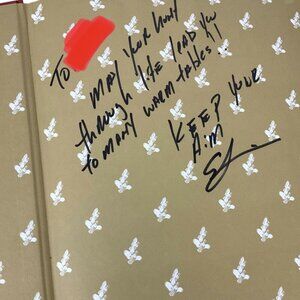 To
May your way
through life lead you
to many warm tables...
KEEP your
Aim